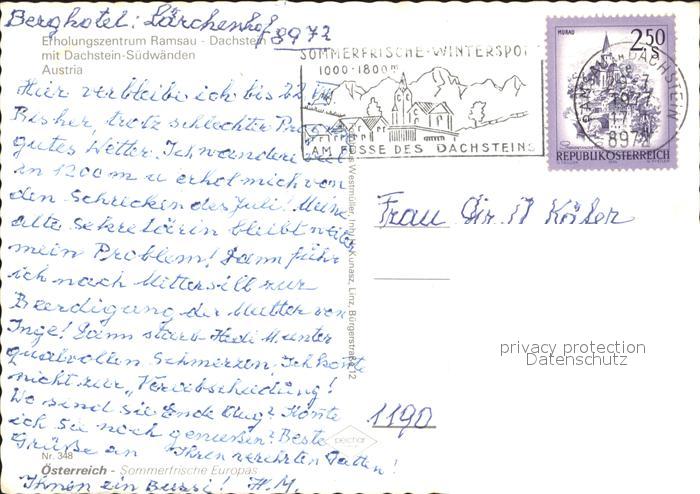 Berghotel: Lärchenhof
8972
Erholungszentrum Ramsau - Dachstein
mit Dachstein-Südwänden
Austria
Hier verbleibe ich bis 22. VIII.
Bisher, trotz schlechter
gutes Wetter. Ich wandere viel
in 1200 m u erhol mich von
den Schrecken des Juli! Meine
alte Sekretärin bleibt weiter
mein Problem! Dann führ
ich nach Mittersill zur
Beerdigung der Mutter von
Inge! Dann starb Hedi H. unter
qualvollen Schmerzen. Ich konnte
nicht zur „Verabschiedung!
Wo sind sie Ende Aug? Könte
ich Sie noch genießen? Beste
Grüße an Ihren verehrten Gatten!
Ihnen ein Bussi! H. M.
Nr. 348
Österreich - Sommerfrische Europas
SOMMERFRISCHE-WINTERSPORT
1000-1800m
AM FUSSE DES DACHSTEINS
MURAU
2.50
S
REPUBLIK ÖSTERREICH
RAMSAU AM DACHSTEIN
8972
Westmüller, Inh. H. Kunasz, Linz, Bürgerstraße 12
Frau Dir.
1190
privacy protection
Datenschutz